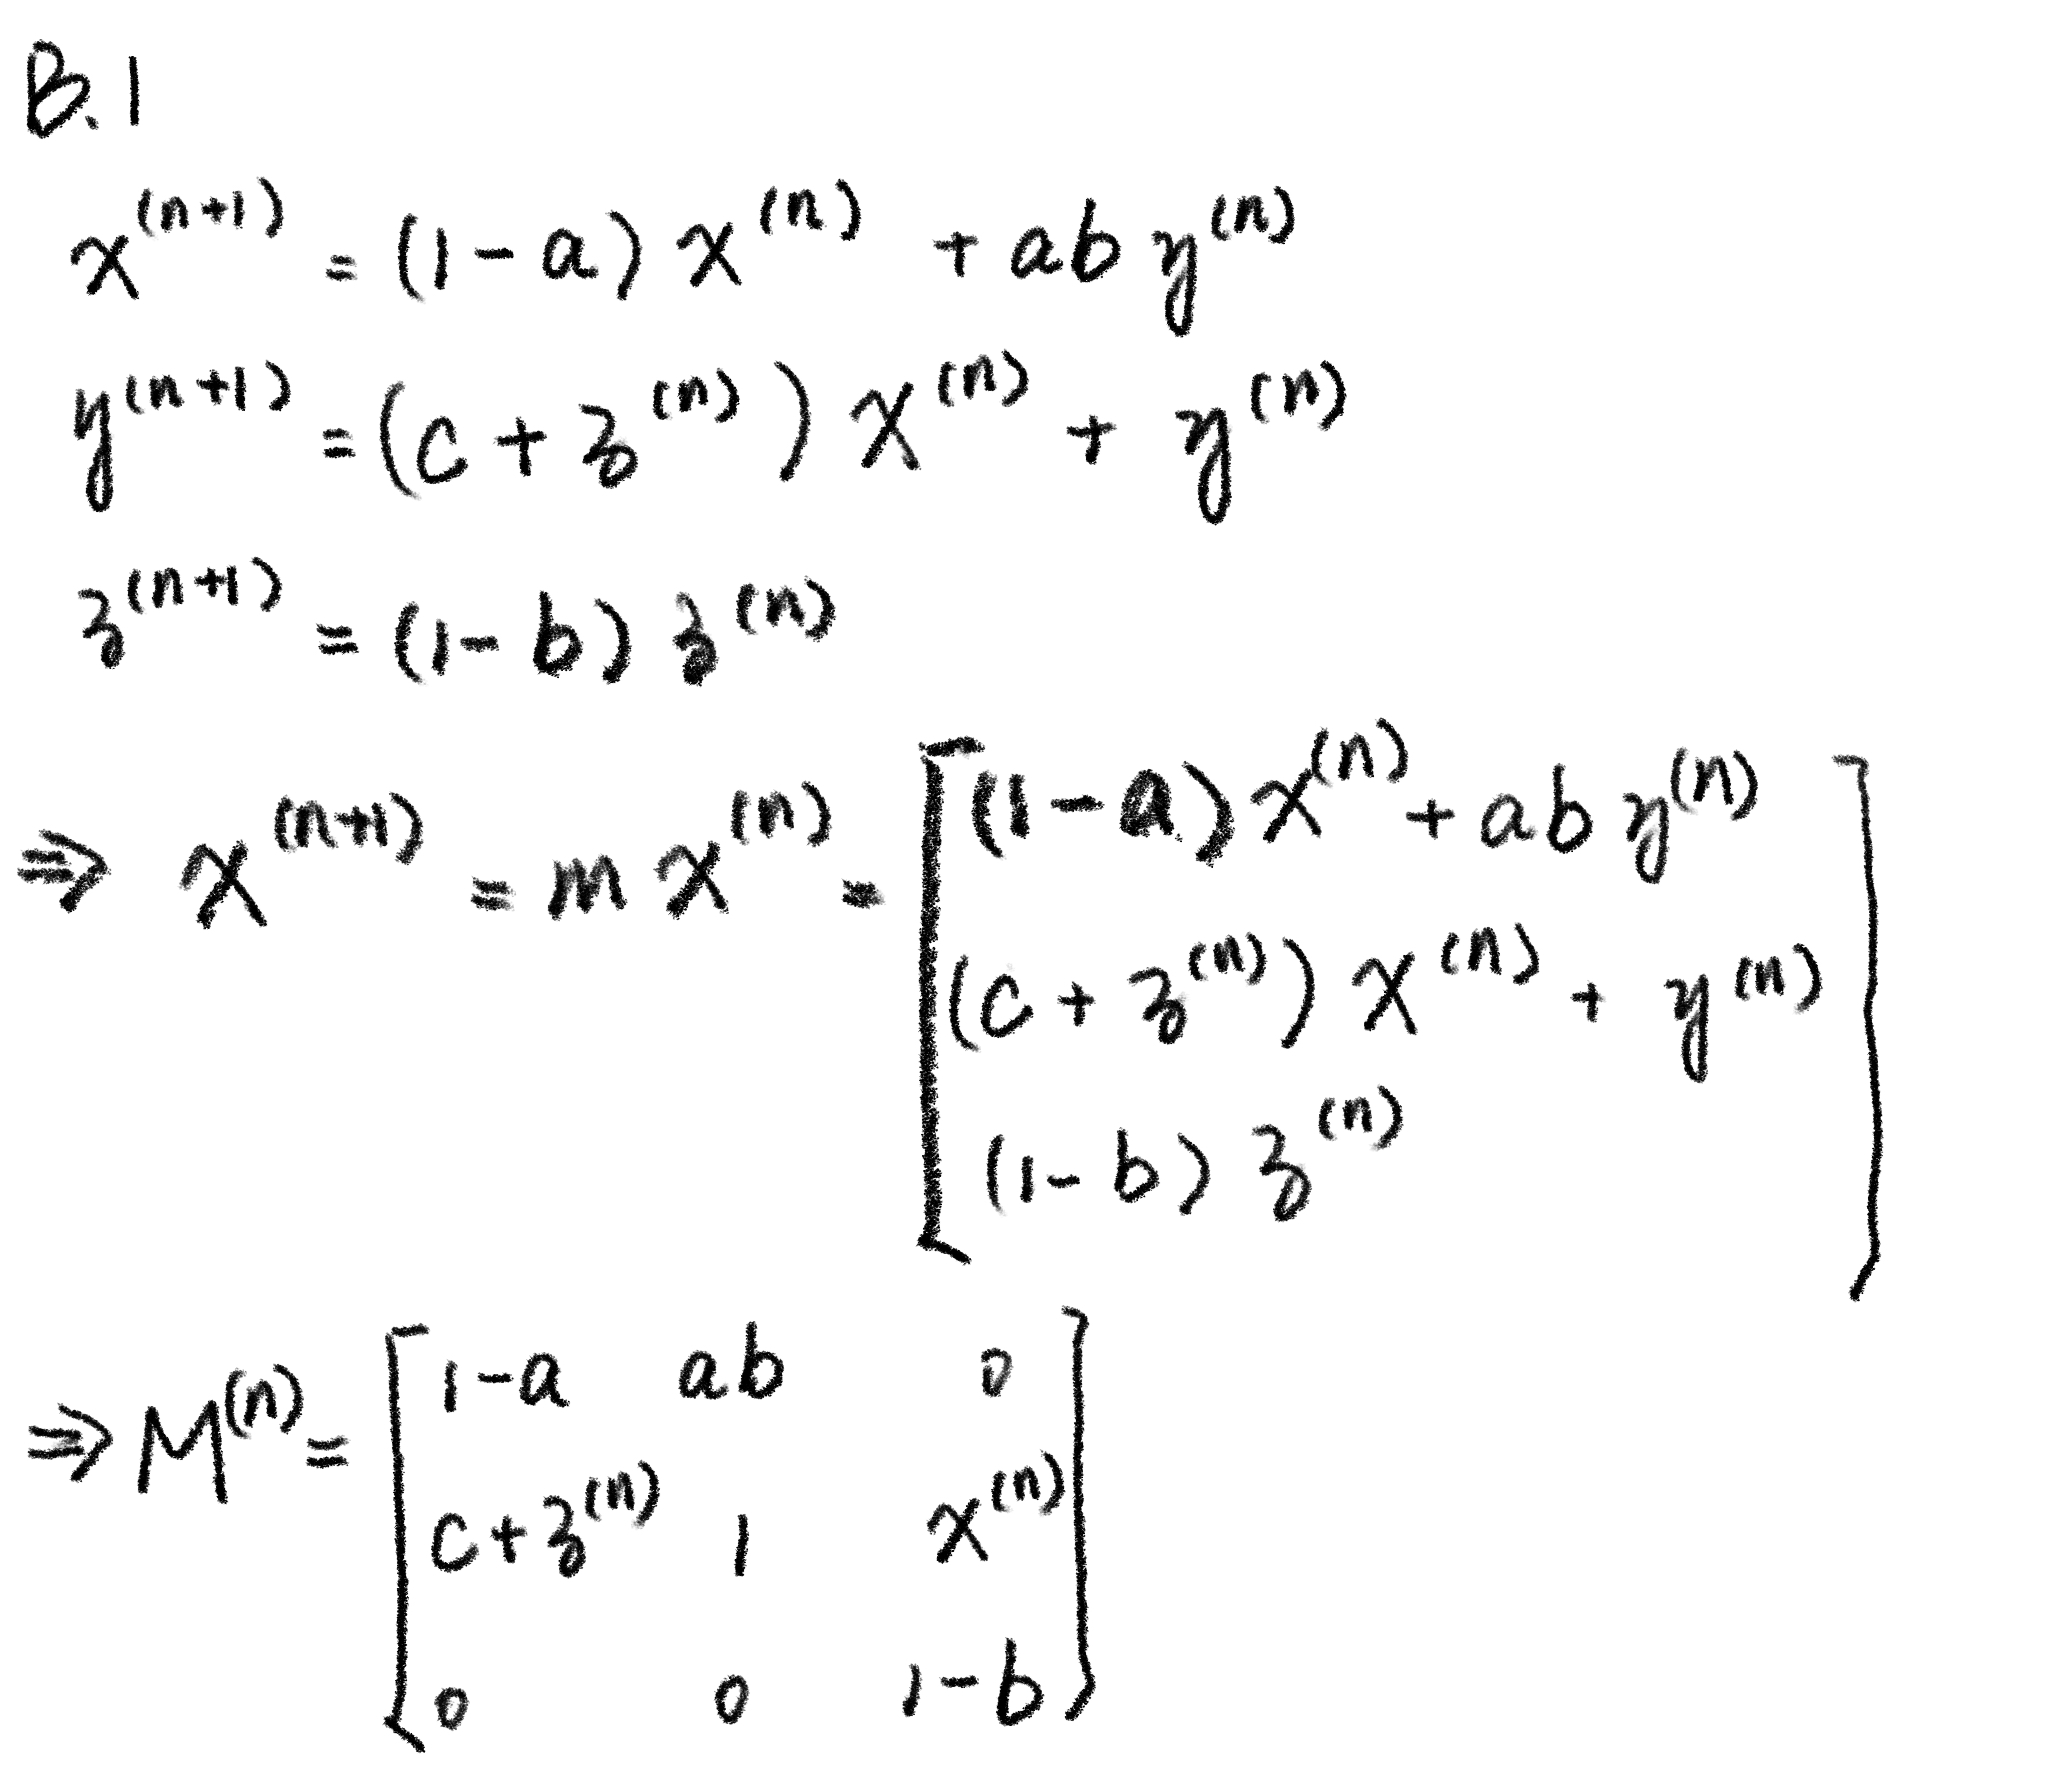 B.1
x^(n+1) = (1-a) x^(n) + ab y^(n)
y^(n+1) = (c + z^(n)) x^(n) + y^(n)
z^(n+1) = (1-b) z^(n)
⇒ x^(n+1) = m x^(n) = [ (1-a) x^(n) + ab y^(n)
(c + z^(n)) x^(n) + y^(n)
(1-b) z^(n) ]
⇒ M^(n) = [ 1-a ab 0
c+z^(n) 1 x^(n)
0 0 1-b ]